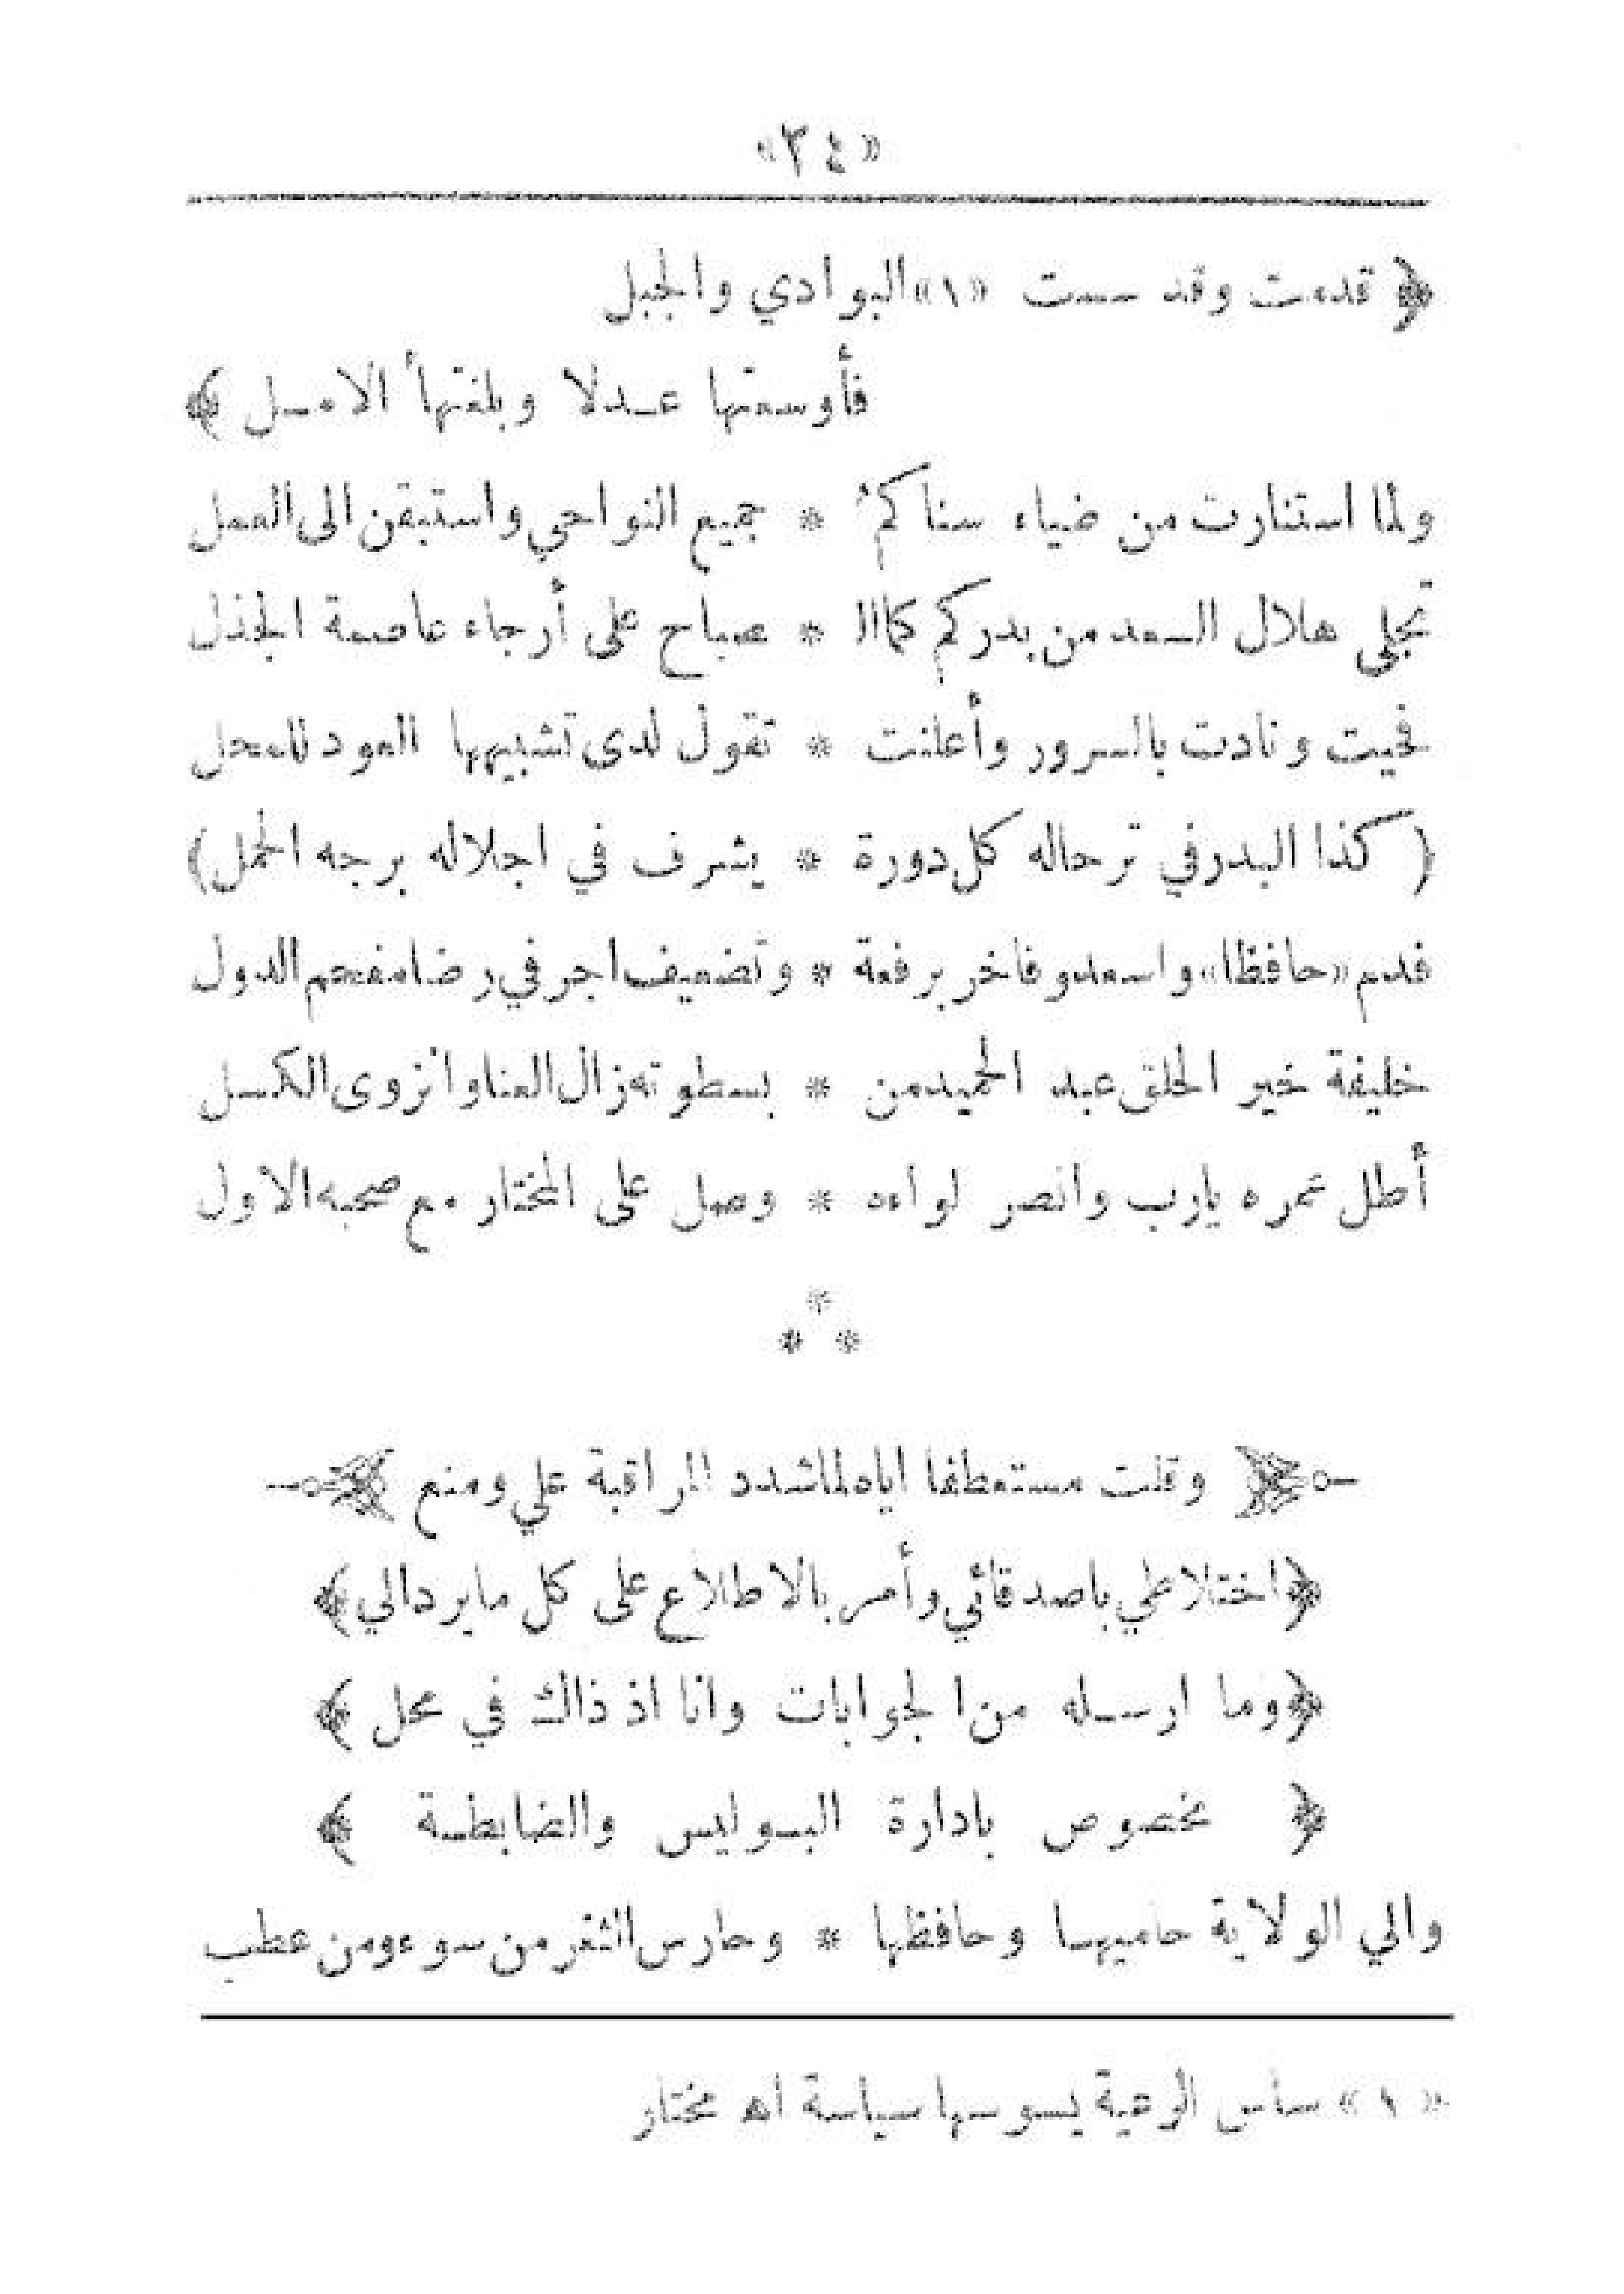 «٣٤»
﴿ قدمت وقد سست «١» البوادي والجبل
فأوسعتها عدلا وبلغتها الامل ﴾
ولما استنارت من ضياء سناكمُ * جميع النواحي واستبقن الى العمل
تجلى هلال السعد من بدركم كمالا * صباح على أرجاء عاصمة الجذل
فحيت ونادت بالسرور وأعلنت * تقول لدى تشبيهها العود للمحل
( كذا البدر في ترحاله كل دورة * يشرف في اجلاله برجه الحمل)
فدم «حافظا» واسعد وفاخر برفعة * وتضعيف اجر في رضا مفحم الدول
خليفة خير الخلق عبد الحميد من * بسطوته زال العنا وانزوى الكسل
أطل عمره يارب وانصر لواءه * وصل على المختار مع صحبه الاول
*
* *
وقلت مستعطفا اياه لما شدد المراقبة علي ومنع
﴿اختلاطي باصدقائي وأمر بالاطلاع على كل ما يرد الي﴾
﴿وما ارسله من الجوابات وانا اذ ذاك في محل ﴾
﴿ مخصوص بادارة البوليس والضابطة ﴾
والي الولاية حاميها وحافظها * وحارس الثغر من سوء ومن عطب
« ١ » ساس الرعية يسوسها سياسة اه مختار